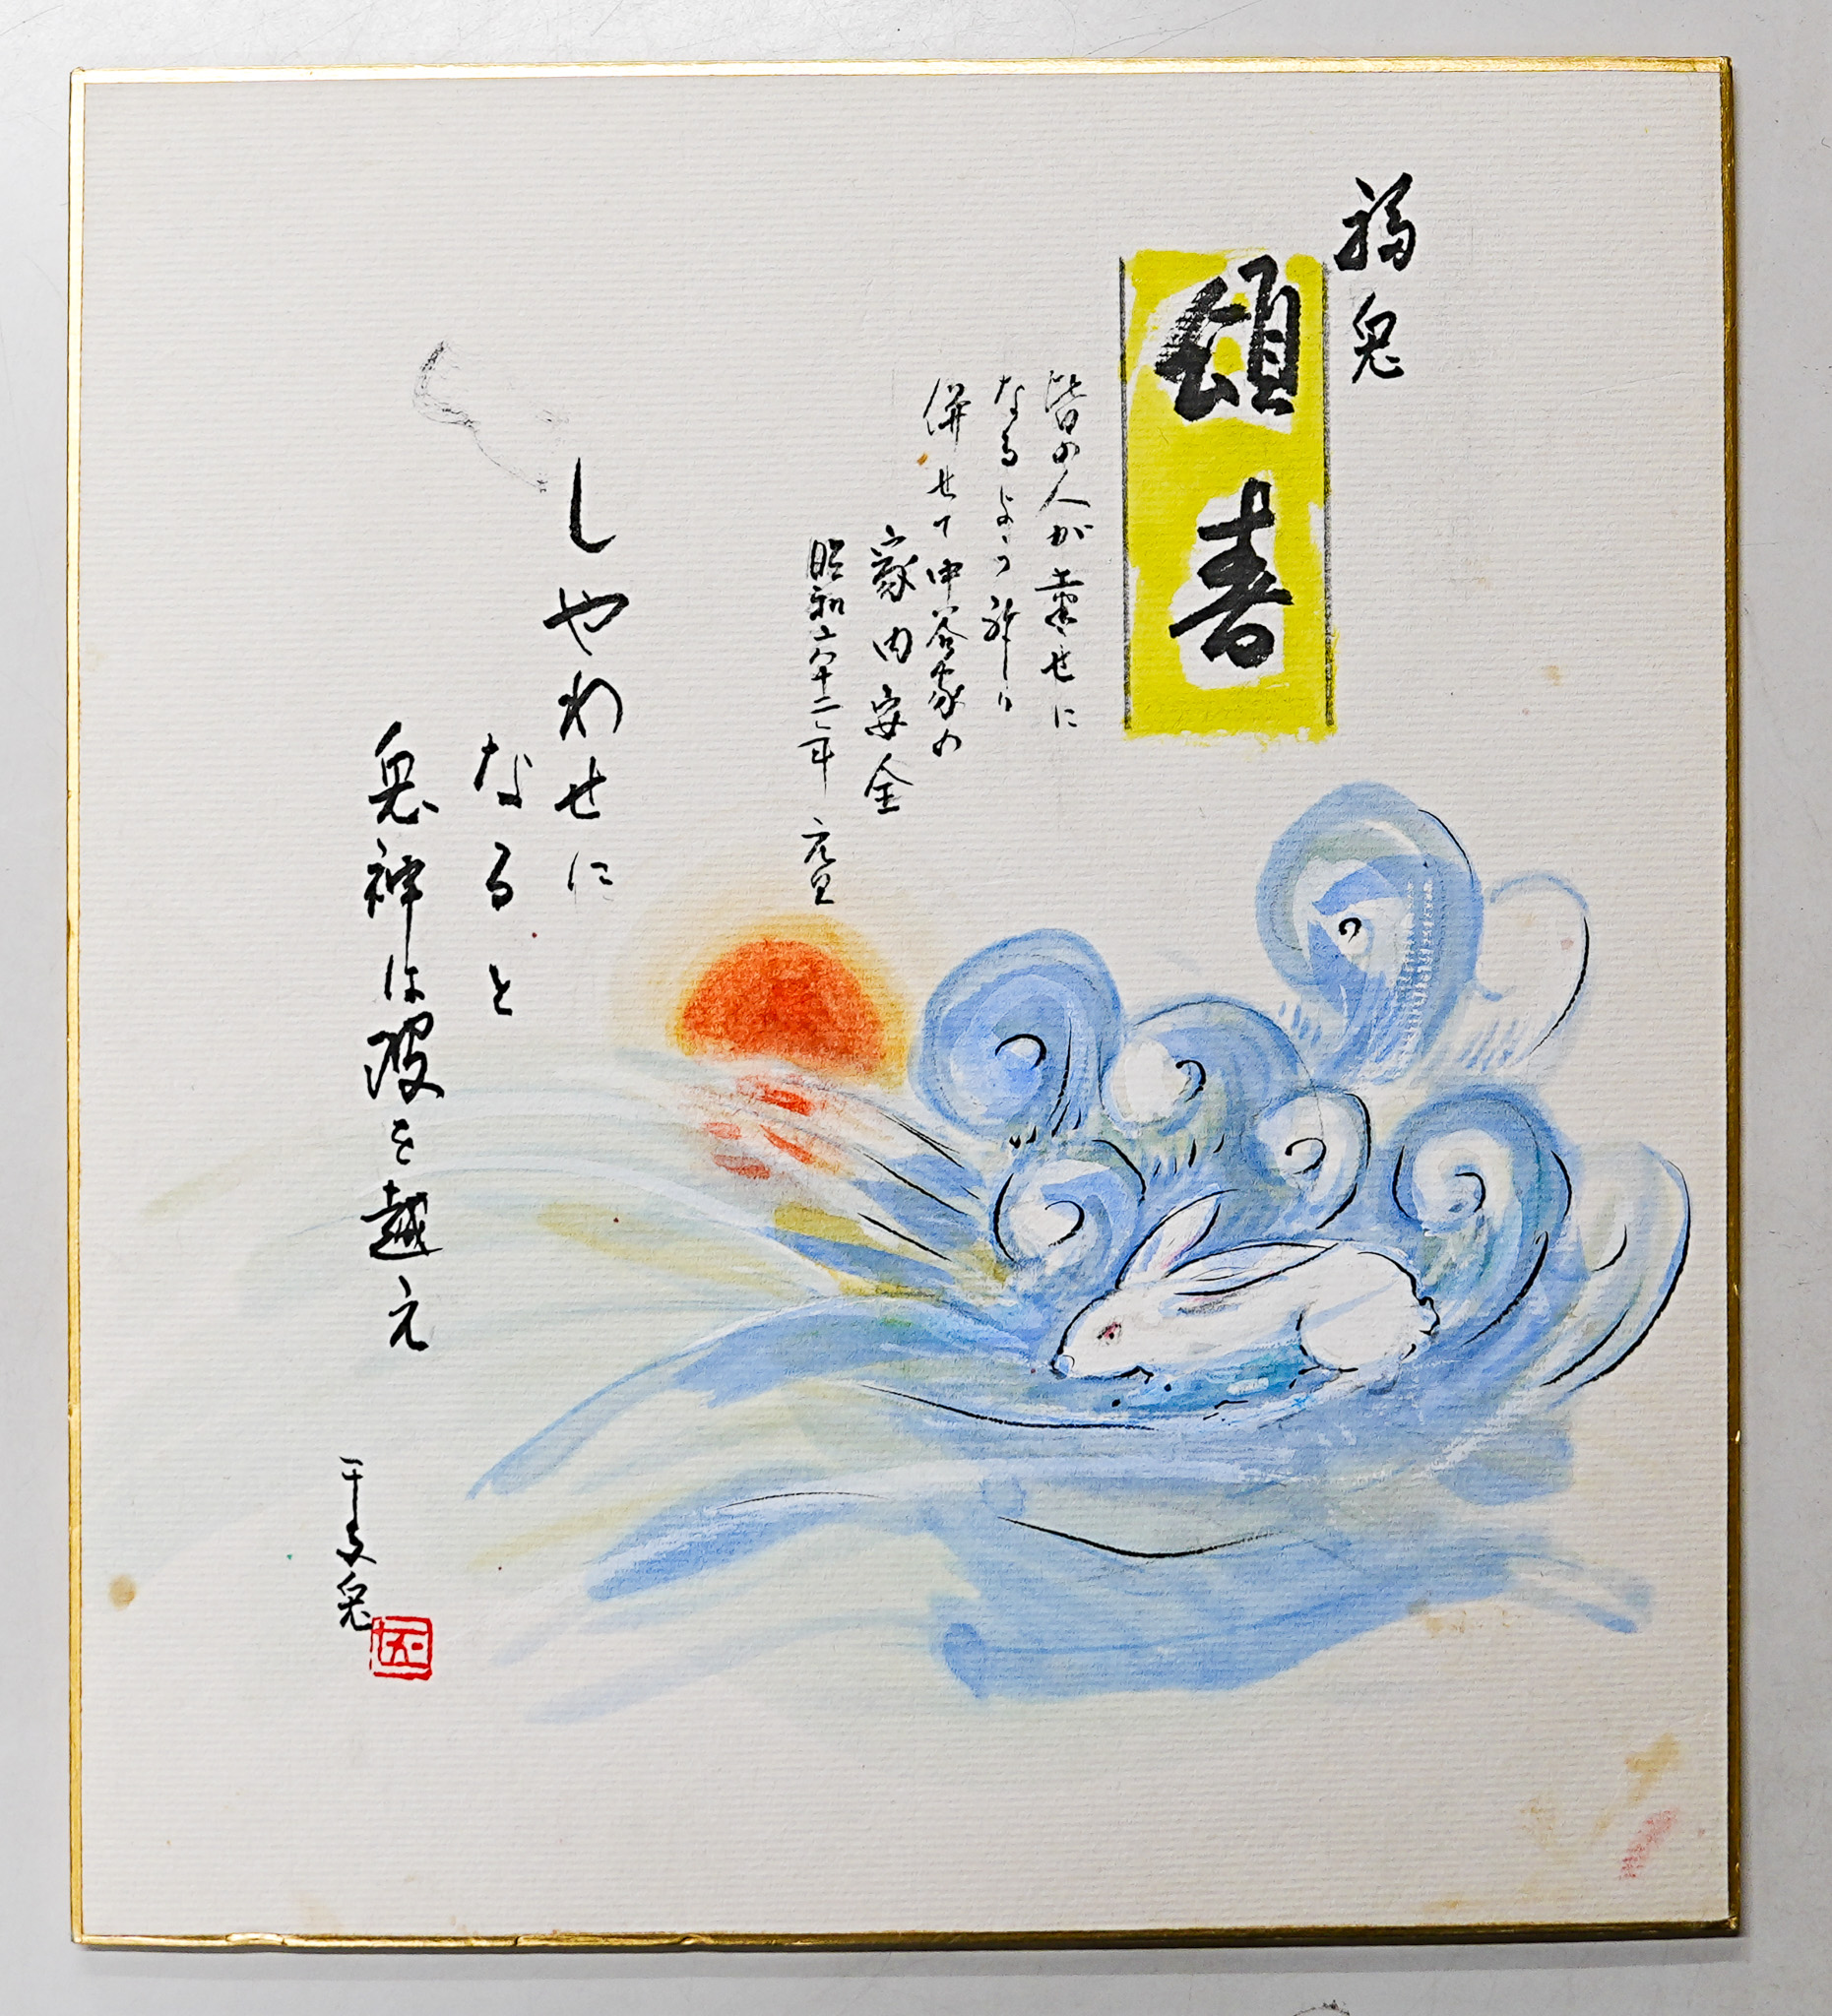 福兎
頌春
皆の人が幸せに
なるよう祈り
併せて中谷家の
家内安全
昭和六十二年 元旦
しやわせに
なると
兎神は波を越え
干支兎